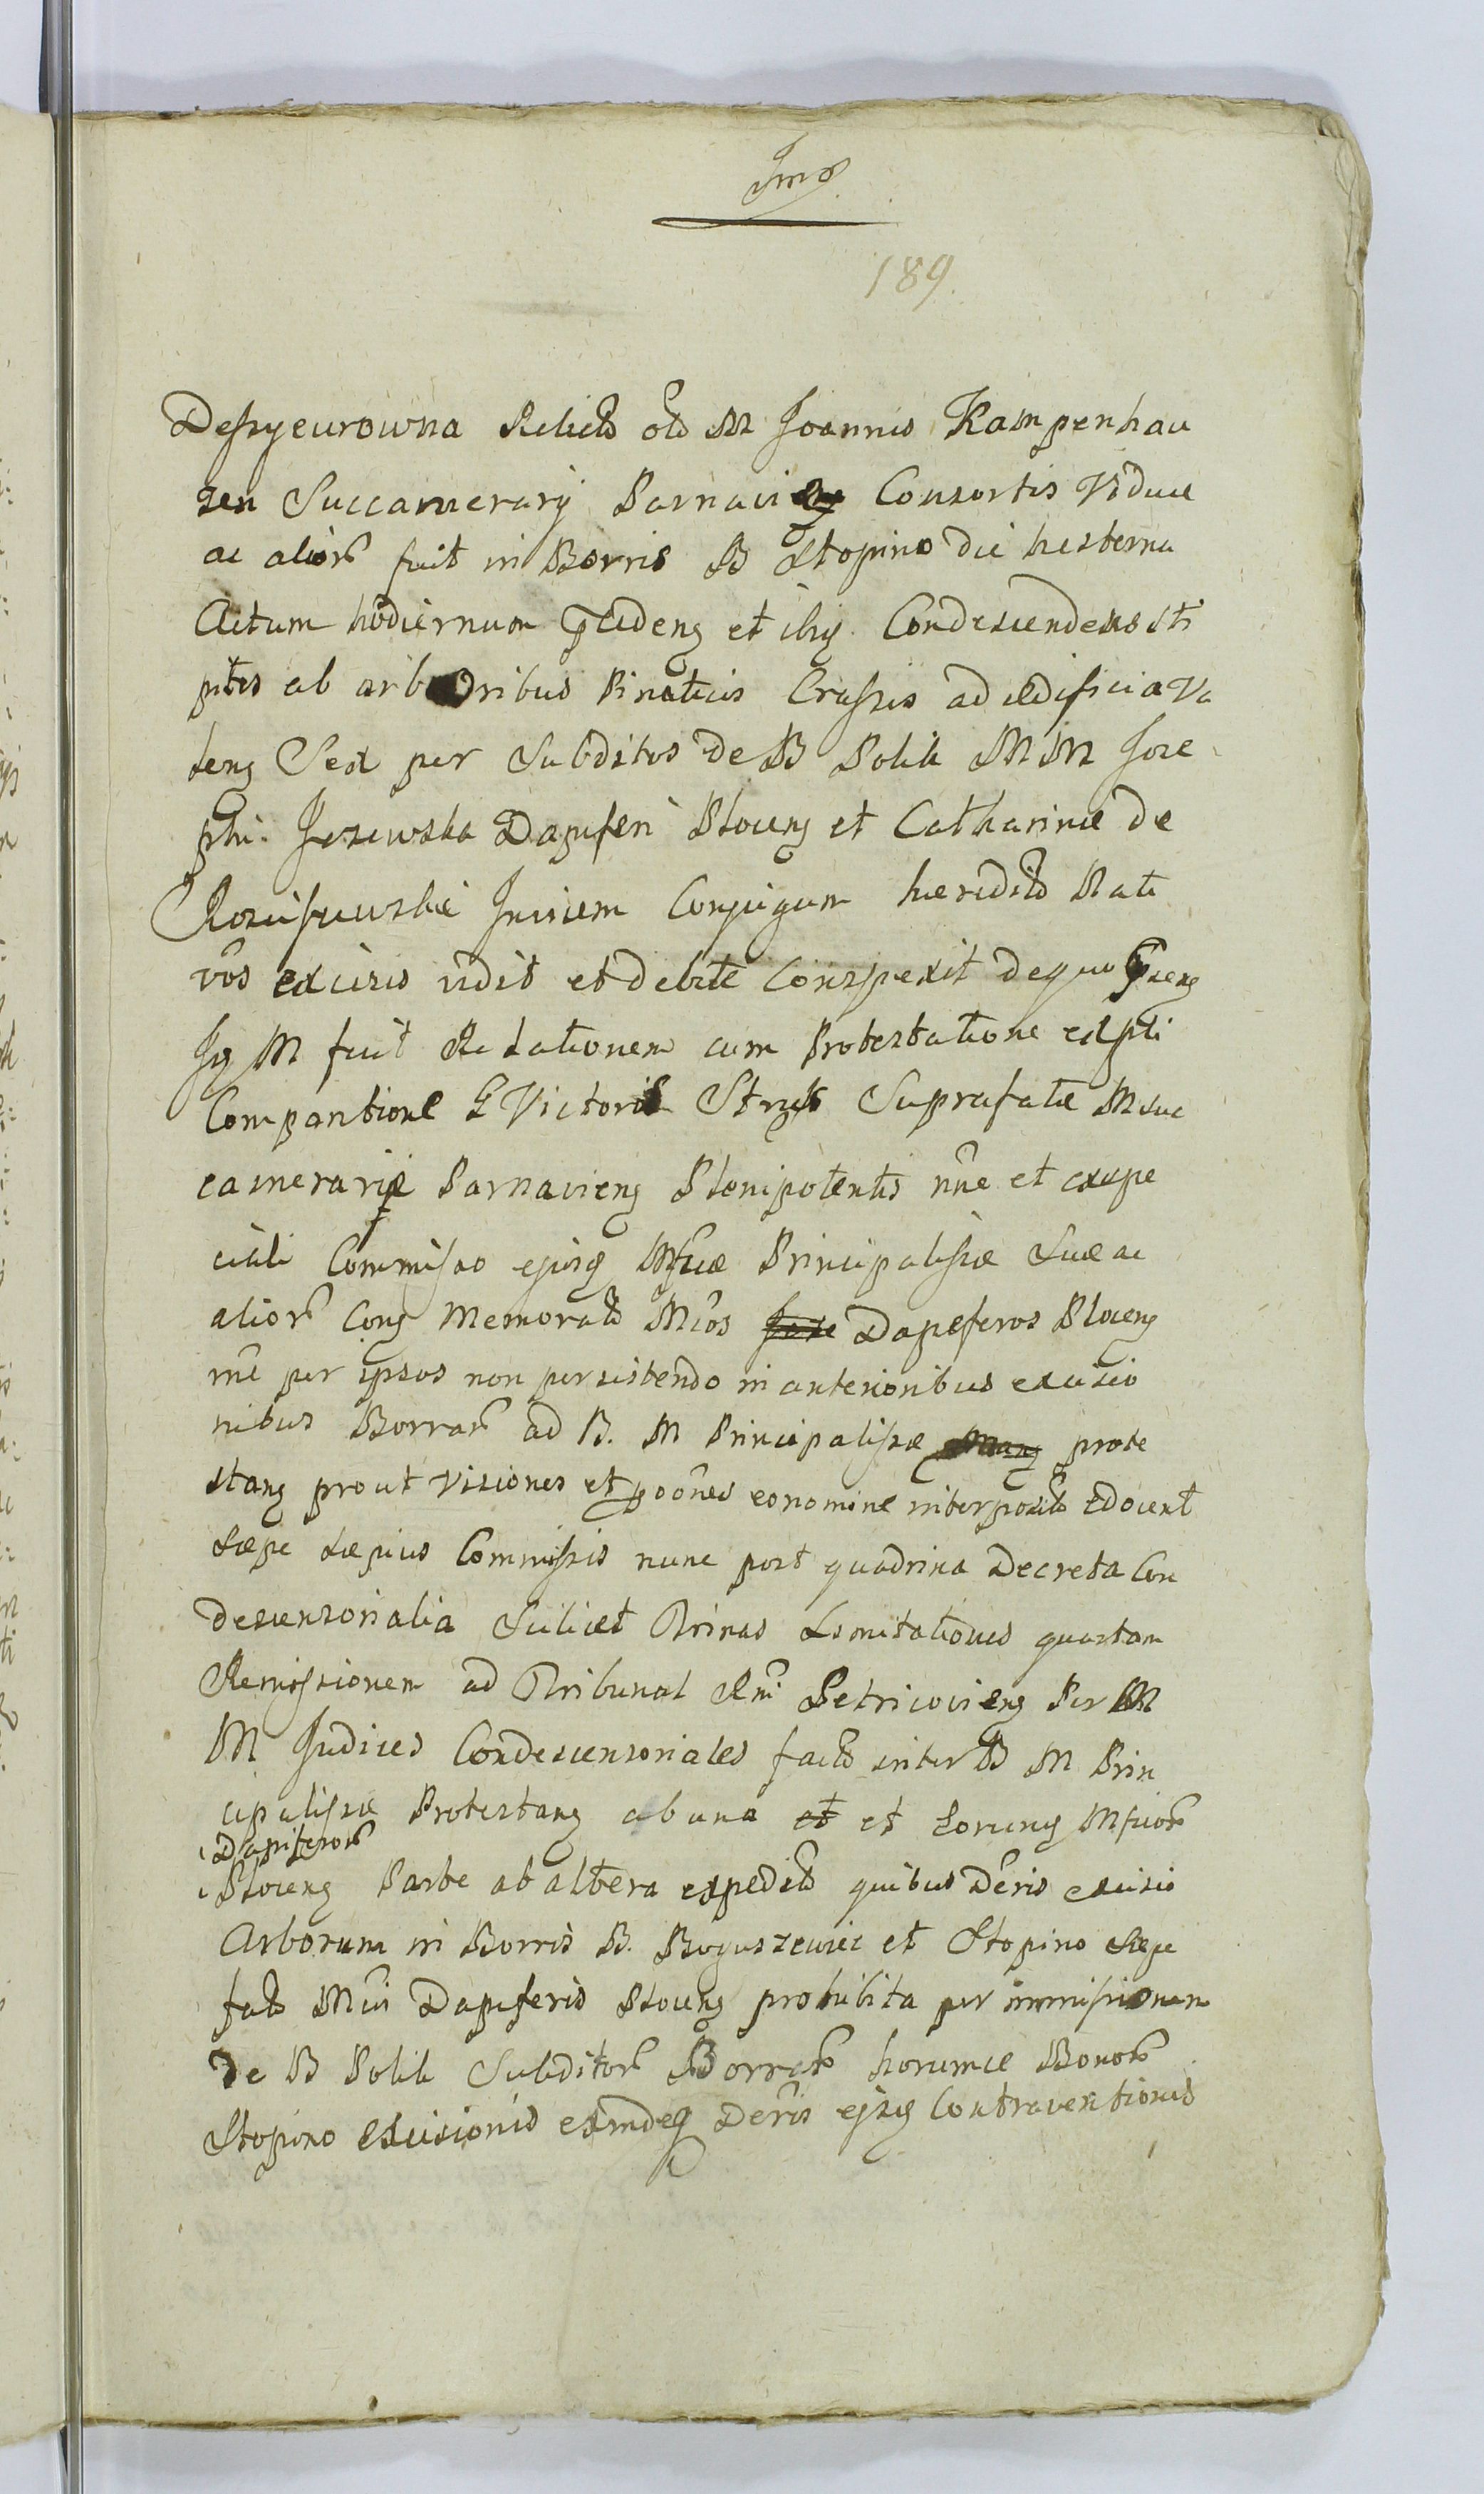 Jmo
189.
Deszyeurowna Relictæ olim M Joannis Kampenhau
zen Succamerarij Parnavien Consortis Viduæ
ac alior fuit in Borris B Stopino die hesterna
Actum hodiernum præcedeng et ibiq Condescendens sti
pites ab arboribus Pinaticis Crassis ad ædificia Va
leng Sed per Subditos de B Polik MM Jose
phi Jezewska Dapiferi Ploceng et Catharinæ de
Rosciszewskie Invicem Conjugum hæredit Nati
vos excisis vidit et debite Conspexit de quo præseng
Jg M fecit Relationem cum Protestatione expti
Comparitione G Victoris Suprafatæ M Suc
camerariæ Parnavieng Plenipotentis nne et ex spe
ciali Commisso ejusq Mficæ Principalissæ Suæ ac
alior Cong Memorat Micos Dapiferos Ploceng
per ipsos non persistendo in anterioribus excisio
nibus Borrar ad B. M Principalissæ prote
stang prout visiones et pooñes eo nomine interposit Edocent
sæpe sæpius Commissis nunc post quadrina Decreta Con
descensorialia Scilicet Trinas Limitationes quartam
Remissionem ad Tribunal Rni Petricovieng Per M
M Judices Condescensoriales fact inter B M Prin
cipalissæ Protestang ab una et et Eorung Mficor
Dapiferor
Ploceng Parte ab altera expedit quibus Deris excisio
Arborum in Borris B. Boguszewiec et Stopino sæpe
fat Mcis Dapiferis Ploceng prohibita per immissionem
de B Polik Subditor Borrar horumce Bonor
Stopino excisionis eismdeq Deris ejusq Contraventionis